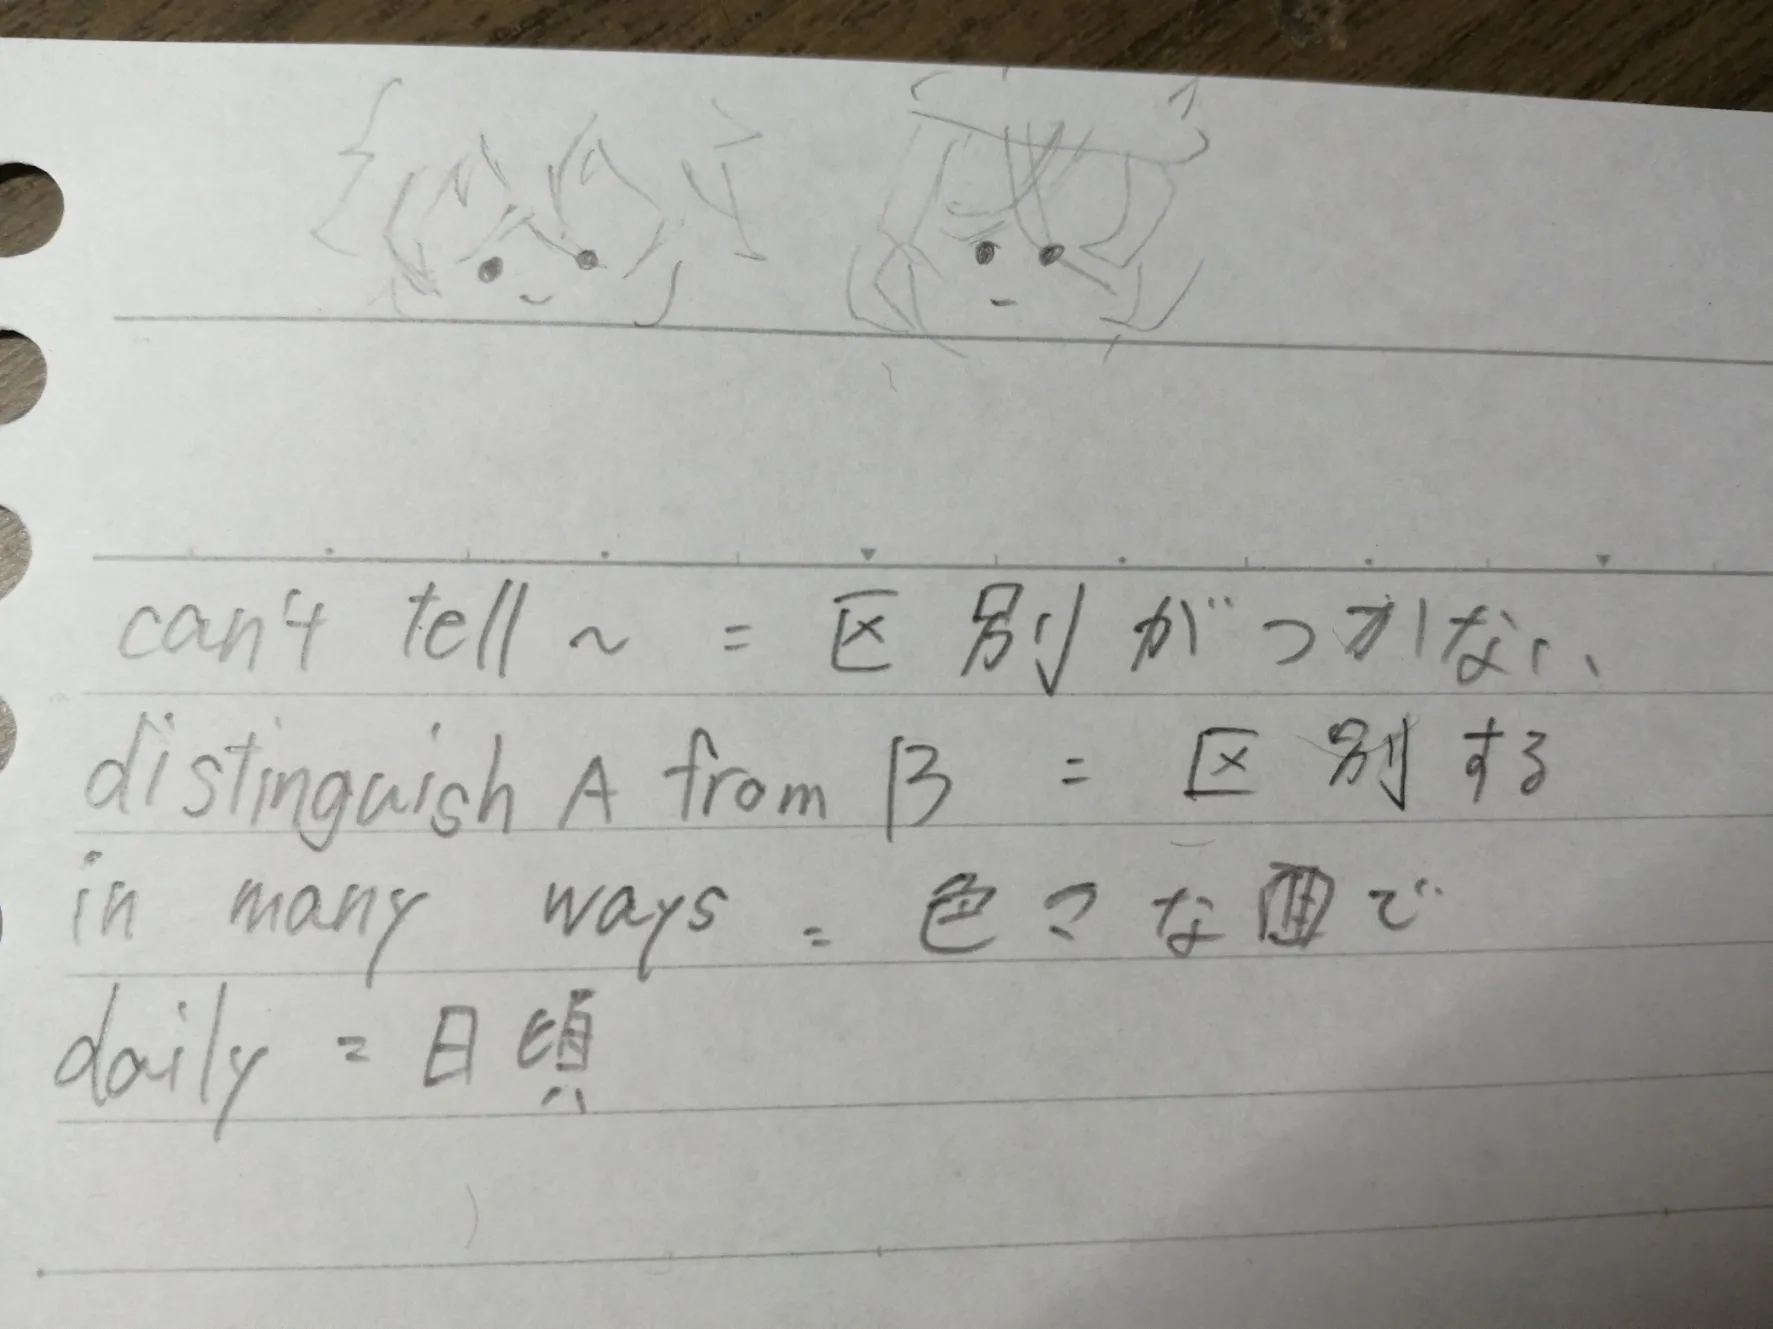 can't tell ~ = 区別がつかない、
distinguish A from B = 区別する
in many ways = 色々な面で
daily = 日頃